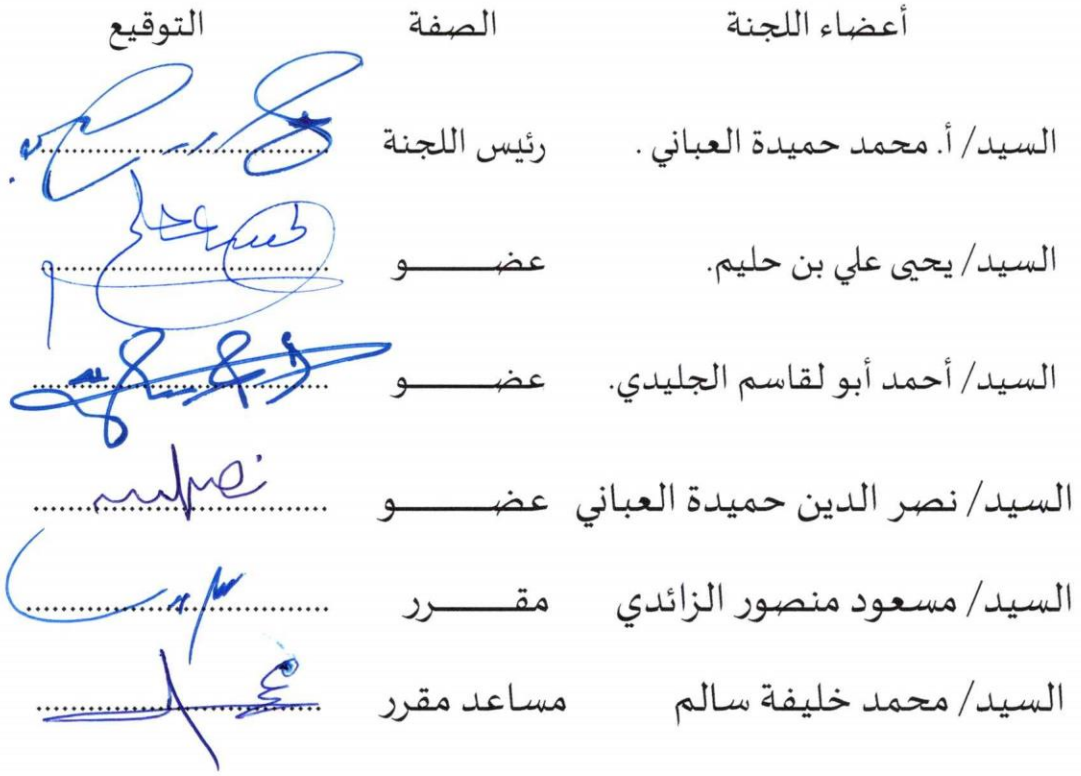 أعضاء اللجنة الصفة التوقيع
السيد/ أ. محمد حميدة العباني . رئيس اللجنة ..............................
السيد/ يحيى علي بن حليم. عضـــــــو ..............................
السيد/ أحمد أبو لقاسم الجليدي. عضـــــــو ..............................
السيد/ نصر الدين حميدة العباني عضـــــــو ..............................
السيد/ مسعود منصور الزائدي مقـــــــرر ..............................
السيد/ محمد خليفة سالم مساعد مقرر ..............................